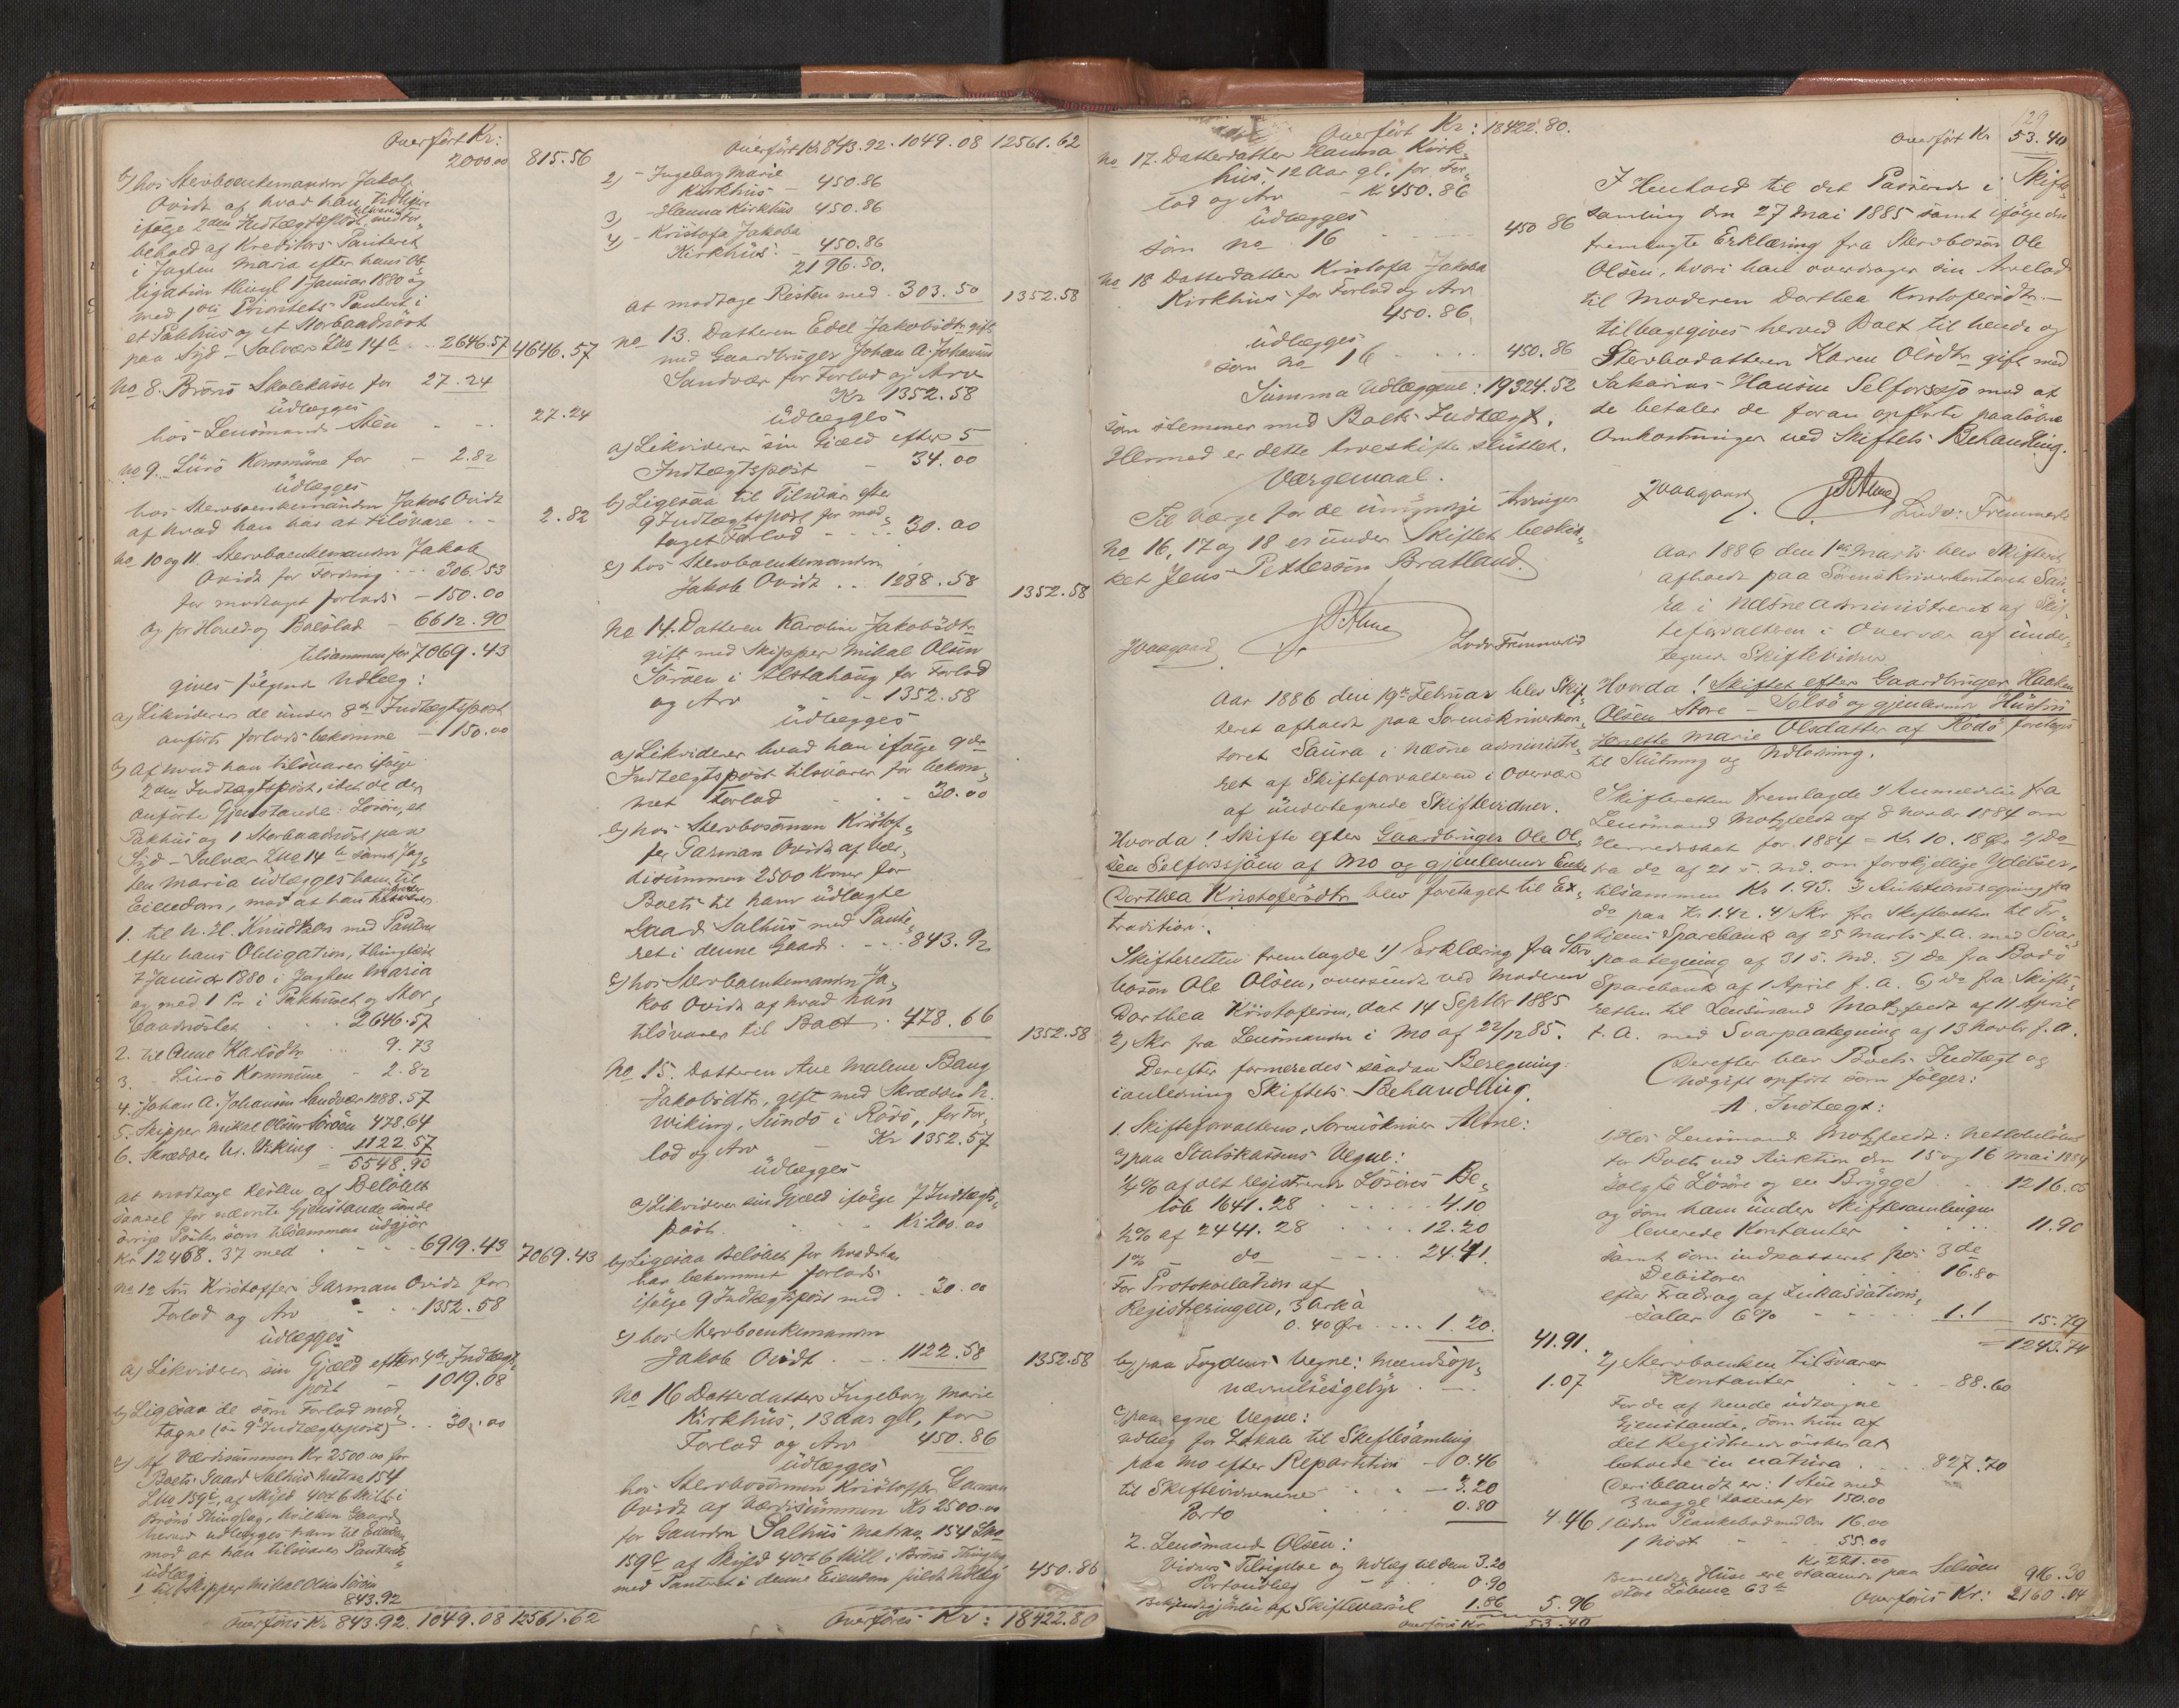 Overført Kr:
2000.00 815.56
b) hos Stervboenkemanden Jakob
Ovidt af hvad han tilsvarer
ifølge 2den Indtægtspost med For-
behold af Kreditors Panteret
i Jagten Maria efter hans Ob-
ligation thingl 7 Januar 1880 og
med 1ste Prioritets Panteret i
et Pakhus og et Storbaadnøst
paa Syd-Solvær Lno 14 b .. 2646.57 4646.57
No 8. Brønø Skolekasse for 27.24
udlægges
hos Lensmand Sten - - 27.24
No 9. Lurø Kommune for - 2.82
udlægges
hos Stervboenkemanden Jakob Ovidt
af hvad han har at tilsvare - - 2.82
No 10 og 11. Stervboenkemanden Jakob
Ovidt for Fordring ... 306.53
for modtaget forlods - 150.00
og for Hoved og Boeslod - 6612.90
tilsammen for 7069.43
gives følgende Udlæg:
a) Likviderer de under 8de Indtægtspost
anførte forlods bekomne - 150.00
b) af hvad han tilsvarer ifølge
2den Indtægtspost, idet de der
anførte Gjenstande: Løsøre, et
Pakhus og 1 Storbaadnøst paa
Syd-Solvær Lno 14 b samt Jag-
ten Maria udlægges ham til
Eiendom, mod at han udreder
1. til N. H. Knudtzon med Panteret
efter hans Obligation, thinglæst
7 Januar 1880 i Jagten Maria
og med 1 Pr i Pakhuset og Stor-
baadnøstet . . 2646.57
2. til Anne Karlsdtr .. 9.73
3. - Lurø Kommune - 2.82
4. Johan A. Johansen Sandvær 1288.57
5. Skipper Mikal Olsen Sørøen 478.64
6. Skrædder N. Wiking . 1122.57
= 5548.90
at modtage Resten af Beløbet
saavel for nævnte Gjenstande som de
øvrige Poster som tilsammen udgjør
Kr 12468.37 med . . 6919.43 7069.43
No 12 Søn Kristoffer Garman Ovidt for
Forlod og Arv . . 1352.58
udlægges
a) Likviderer sin Gjæld efter 4de Indtægts-
post - 1019.08
b) Ligesaa de som Forlod mod-
tagne (sin 9de Indtægtspost) . . 30.00
c) Af Værdisummen Kr 2500.00 for
Boets Gaard Salhus Matno 154
Lno 159c, af Skyld 4 ort 6 Skill i
Brønø Thinglag, hvilken Gaard
herved udlægges ham til Eiendom
mod at han tilsvarer Panterets
udlæg
1 til Skipper Mikal Olsen Sørøen
843.92
Overføres Kr 843.92. 1049.08 12561.62
Overført Kr 843.92. 1049.08 12561.62
2) - Ingeborg Marie
Kirkhus - 450.86
3) - Hanna Kirkhus 450.86
4) - Kristofa Jakoba
Kirkhus - 450.86
2196.50.
at modtage Resten med . 303.50 1352.58
No 13. Datteren Edel Jakobsdtr gift
med Gaardbruger Johan A. Johansen
Sandvær for Forlod og Arv
Kr 1352.58
udlægges
a) Likviderer sin Gjæld efter 5
Indtægtspost - 34.00
b) Ligesaa til Tilsvar efter
9 Indtægtspost for mod-
taget Forlod - - - 30.00
c) hos Stervboenkemanden
Jakob Ovidt .. 1288.58 1352.58
No 14. Datteren Karoline Jakobsdtr
gift med Skipper Mikal Olsen
Sørøen i Alstahaug for Forlod
og Arv - - 1352.58
udlægges
a) Likviderer hvad han ifølge 9de
Indtægtspost tilsvarer for bekom-
met Forlod - - 30.00
b) hos Stervbosønnen Kristof-
fer Garman Ovidt af Vær-
disummen 2500 Kroner for
Boets til ham udlagte
Gaard Salhus med Pante-
ret i denne Gaard . - - 843.92
c) hos Stervboenkemanden Ja-
kob Ovidt af hvad han
tilsvarer til Boet . 478.66 1352.58
No 15. Datteren Ane Malene Bang
Jakobsdtr, gift med Skrædder N.
Wiking, Sundø i Rødø, for For-
lod og Arv - Kr 1352.57
udlægges
a) Likviderer sin Gjæld ifølge 7 Indtægts-
post . . . Kr 200.00
b) Ligesaa Beløbet for hvad han
har bekommet forlods
ifølge 9 Indtægtspost med . . 30.00
c) hos Stervboenkemanden
Jakob Ovidt . - - 1122.58 1352.58
No 16 Datterdatter Ingeborg Marie
Kirkhus, 13 Aar gl, for
Forlod og Arv 450.86
udlægges
hos Stervbosønnen Kristoffer Garman
Ovidt af Værdisummen Kr 2500.00
for Gaarden Salhus Matno 154 Lno
159c af Skyld 4 ort 6 Skill i Brønø Thinglag
med Panteret i denne Eiendom fuldt Udlæg 450.86
Overføres Kr: 18422.80
Overført Kr: 18422.80.
No 17. Datterdatter Hanna Kirk-
hus, 12 Aar gl. for For-
lod og Arv - Kr 450.86
udlægges
som No 16 - - - 450 86
No 18 Datterdatter Kristofa Jakoba
Kirkhus for Forlod og Arv
450.86.
udlægges
som No 16 - - - - 450.86
Summa Udlæggene: 19324.52
som stemmer med Boets Indtægt.
Hermed er dette Arveskifte sluttet.
Værgemaal.
Til Værge for de umyndige Arvinger
No 16, 17 og 18 er under Skiftet beskik-
ket Jens Pettersen Bratland.
JVaagaard Alme Ludv Fremmerlid
Aar 1886 den 19de Februar blev Skif-
teret afholdt paa Sorenskriverkon-
toret Saura i Næsne administre-
ret af Skifteforvalteren i Overvær
af undertegnede Skiftevidner.
Hvorda! Skifte efter Gaardbruger Ole Ol-
sen Selforssjøen af Mo og gjenlevende Enke
Dorthea Kristofersdtr blev foretaget til Ex-
tradition.
Skifteretten fremlagde 1) Erklæring fra Sterv-
bosøn Ole Olsen, oversendt ved Moderen
Dorthea Kristofersen, dat 14 Septbr 1885
2) Skr fra Lensmanden i Mo af 22/12 85.
Derefter formeredes saadan Beregning
i anledning Skiftets Behandling.
1. Skifteforvalteren, Sorenskriver Alme:
a) paa Statskassens Vegne:
1/4% af det registrerede Løsøres Be-
løb 1641.28 . . . . . 4.10
1/2% af 2441.28 . . . . 12.20
1% - do - - - - 24.41.
For Protokollation af
Registreringen, 3 Ark à
0.40 Øre . . . . 1.20. 41.91.
b) paa Fogdens Vegne: Mændsop-
nævnelsesgebyr . - - 1.07
c) paa egne Vegne:
Udlæg for Lokale til Skiftesamling
paa Mo efter Repartition - 0.46
til Skiftevidnerne . . - 3.20
Porto . . . 0.80 4.46
2. Lensmand Olsen:
Vidners Tilsigelse og Udlæg til dem 3.20
Portoudlæg - - 0.90
Bekjendtgjørelse af Skiftevarsel 1.86 5.96
Overføres Kr 53.40
129
Overført Kr 53.40
I Henhold til det Passerede i Skifte-
samling den 27 Mai 1885 samt ifølge den
fremlagte Erklæring fra Stervbosøn Ole
Olsen, hvori han overdrager sin Arvelod
til Moderen Dorthea Kristofersdtr -
tilbagegives herved Boet til hende og
Stervbodatteren Karen Olsdtr gift med
Sakarias Hansen Selforssjø mod at
de betaler de foran opførte paaløbne
Omkostninger ved Skiftets Behandling.
JVaagaard. Alme Ludv: Fremmerlid
Aar 1886 den 1ste Marts blev Skifteret
afholdt paa Sorenskriverkontoret Sau-
ra i Næsne administreret af Skif-
teforvalteren i Overvær af under-
tegnede Skiftevidner
Hvorda! Skiftet efter Gaardbruger Haaken
Olsen Store-Selsø og gjenlevende Hustru
Jonette Marie Olsdatter af Rødø foretages
til Slutning og Udlodning.
Skifteretten fremlagde 1) Anmeldelse fra
Lensmand Motzfeldt af 8 Novbr 1884 om
Herredsskat for 1884 = Kr 10.18 Øre 2) Do
fra do af 21 s. Md. om forskjellige Ydelser,
tilsammen Kr 1.93. 3) Auktionsregning fra
do paa Kr 1.42. 4) Skr fra Skifteretten til Tr.
hjems Sparebank af 25 Marts f. A. med Svar-
paategning af 31 s. Md. 5) Do fra Bodø
Sparebank af 1 April f. A. 6) do fra Skifte-
retten til Lensmand Motzfeldt af 11 April
f. A. med Svarpaategning af 13 Novbr f. A.
Derefter blev Boets Indtægt og
Udgift opført som følger:
A. Indtægt:
1. Hos Lensmand Motzfeldt: Nettobeløbet
for Boets ved Auktion den 15 og 16 Mai 1884
solgte Løsøre og en Brygge . . 1216.05
og som ham under Skiftesamlingen
leverede Kontanter . . . 11.90
samt som indkasseret hos 3de
Debitorer . . . 16.80
efter Fradrag af Inkassations-
salær 6% - - - 1.1 15.79
= 1243.74
2) Stervboenken tilsvarer
Kontanter . . - 88.60
For de af hende udtagne
Gjenstande, som hun af
det Registrerede ønsker at
beholde in natura . . . 827.70
Deriblandt er: 1 Stue med
3 vægge taxeret for 150.00
1 liden Plankebod med Ovn 16.00
1 Nøst - - 55.00
Kr 221.00
Bemeldte Huse ere staaende paa Selsøen
store Løbeno 63 a 916.30
Overføres Kr: 2160.04